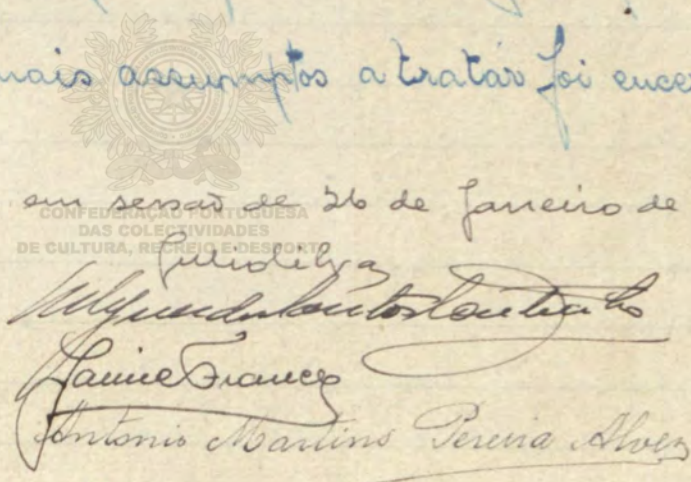 mais assumptos a tratar foi
em sessão de 26 de Janeiro de
CONFEDERAÇÃO PORTUGUESA
DAS COLECTIVIDADES
DE CULTURA, RECREIO E DESPORTO
Julio Silva
Jaime Franco
Antonio Martins Pereira Alves